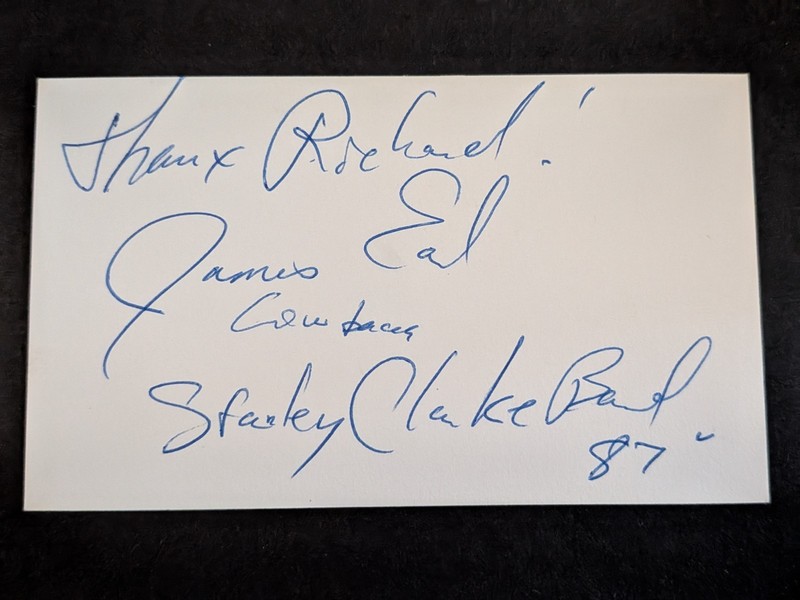 Thanx Richard!
James Earl
Stanley Clarke Band
87